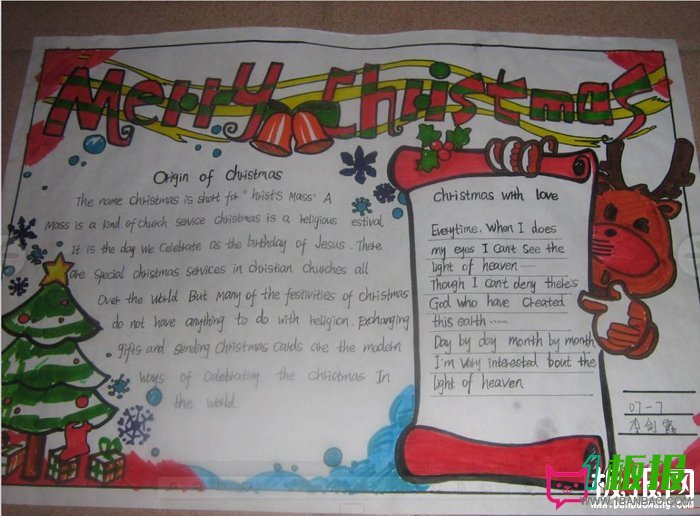 Merry Christmas
Origin of Christmas
The name Christmas is short for "hrist's Mass" A
Mass is a kind of church service christmas is a religious estival
It is the day we celebrate as the birthday of Jesus. There
are special christmas services in christian churches all
Over the World But many of the festivities of christmas
do not have anything to do with religion. Exchanging
gifts and sending Christmas cards are the modern
ways of celebrating the Christmas In
the world
Christmas with love
Everytime. When I does
my eyes I can't see the
light of heaven
Though I can't deny there's
God who have created
this earth .....
Day by day month by month
I'm very interested bout the
light of heaven
07-7
李剑霞
板报
WWW.1BANBAO.COM